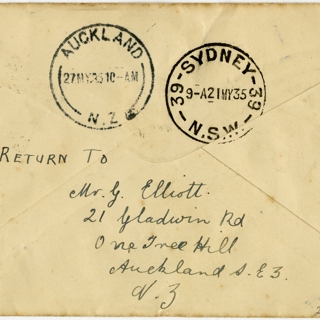 AUCKLAND
27MY35 10-AM
N.Z
SYDNEY
39 9-A21MY35 39
N.S.W.
RETURN TO
Mr. G. Elliott.
21 Gladwin Rd
One Tree Hill
Auckland S.E3.
N.Z